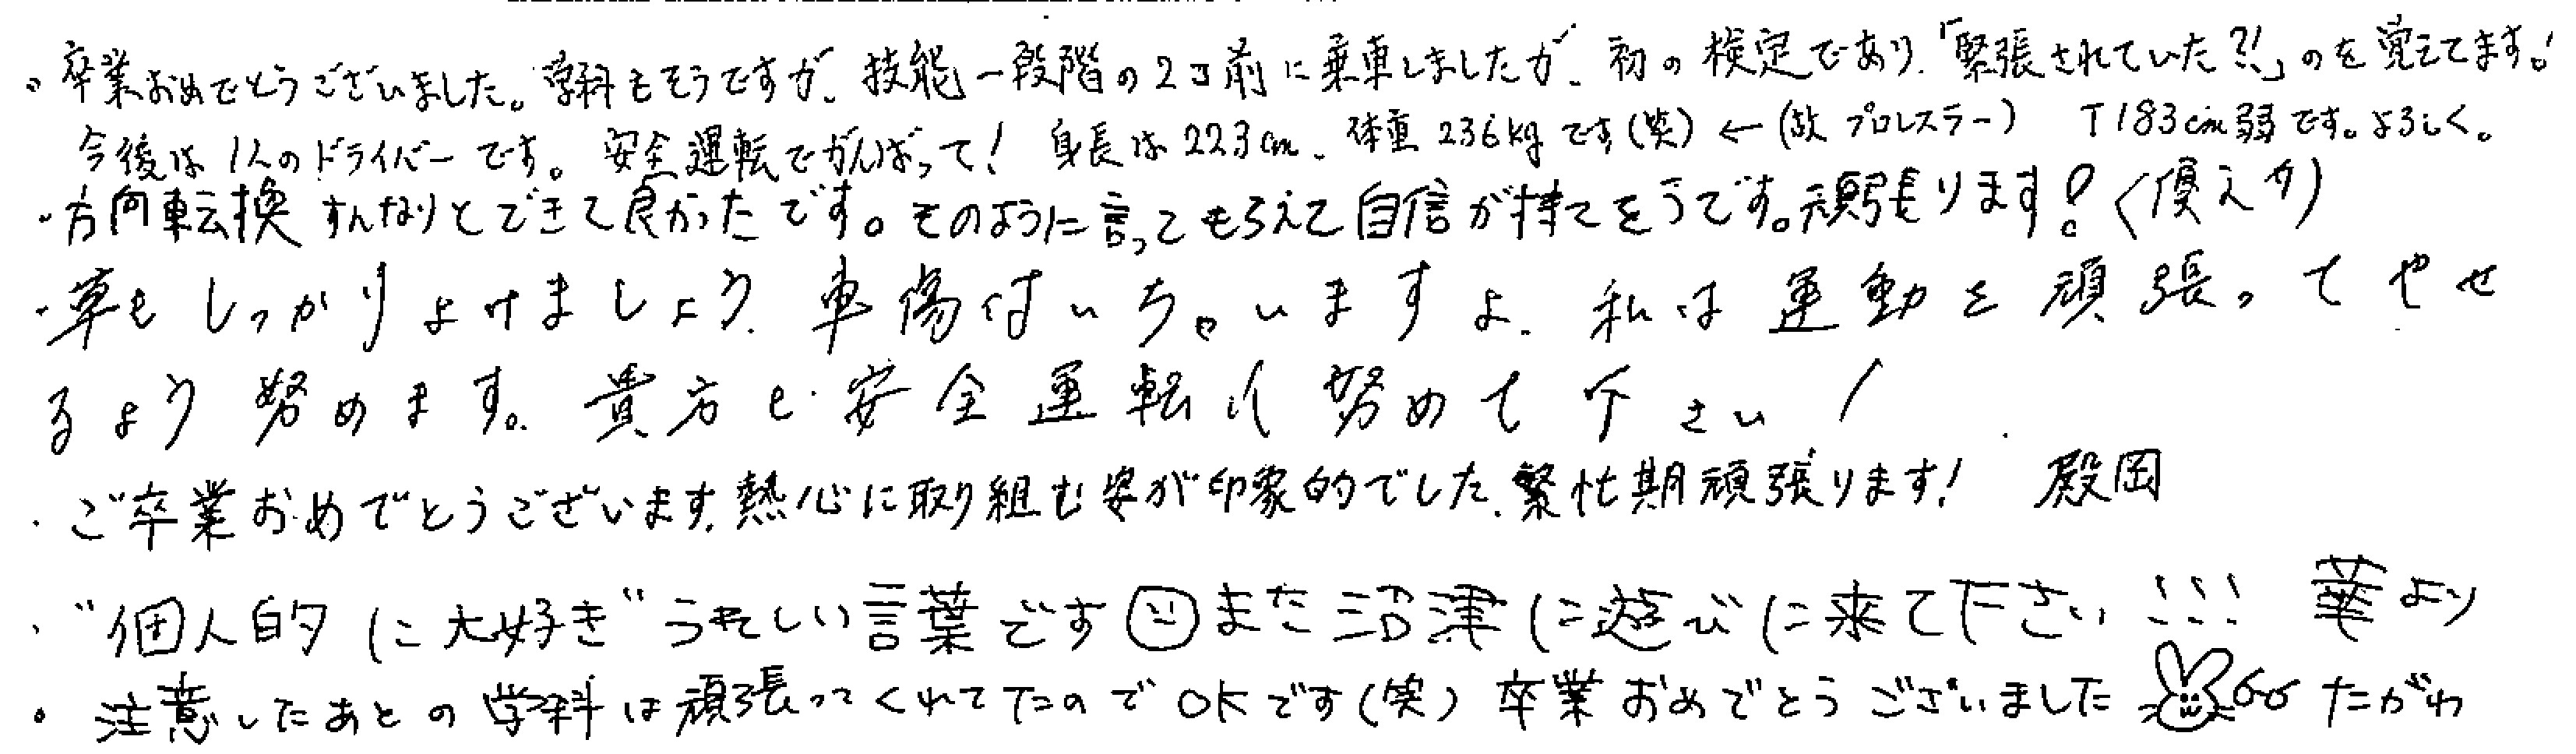 。卒業おめでとうございました。学科もそうですが、技能一段階の2コ前に乗車しましたが、初の検定であり、「緊張されていた?!」のを覚えてます!
今後は1人のドライバーです。安全運転でがんばって! 身長は223cm、体重236kgです(笑)←(故 プロレスラー) T183cm弱です。よろしく。
・方向転換すんなりとできて良かったです。そのように言ってもらえて自信が持てそうです。頑張ります!
・草もしっかりよけましょう。車傷付いちゃいますよ。私は運動を頑張ってやせ
るよう努めます。貴方も安全運転に努めて下さい!
・ご卒業おめでとうございます。熱心に取り組む姿が印象的でした。繁忙期頑張ります! 殿岡
・"個人的に大好き"うれしい言葉ですまた沼津に遊びに来て下さい!!! 華より
。注意したあとの学科は頑張ってくれてたのでOKです(笑) 卒業おめでとうございました たがわ